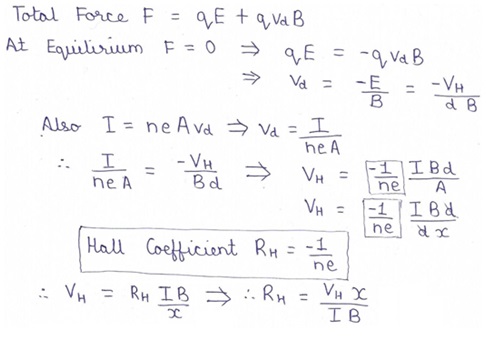 Total Force F = qE + qv_dB
At Equilirium F = 0 ⇒ qE = -qv_dB
⇒ v_d = -E/B = -V_H/dB
Also I = neAv_d ⇒ v_d = I/neA
∴ I/neA = -V_H/Bd ⇒ V_H = -1/ne IBd/A
V_H = -1/ne IBd/dx
Hall Coefficient R_H = -1/ne
∴ V_H = R_H IB/x ⇒ ∴ R_H = V_H x/IB